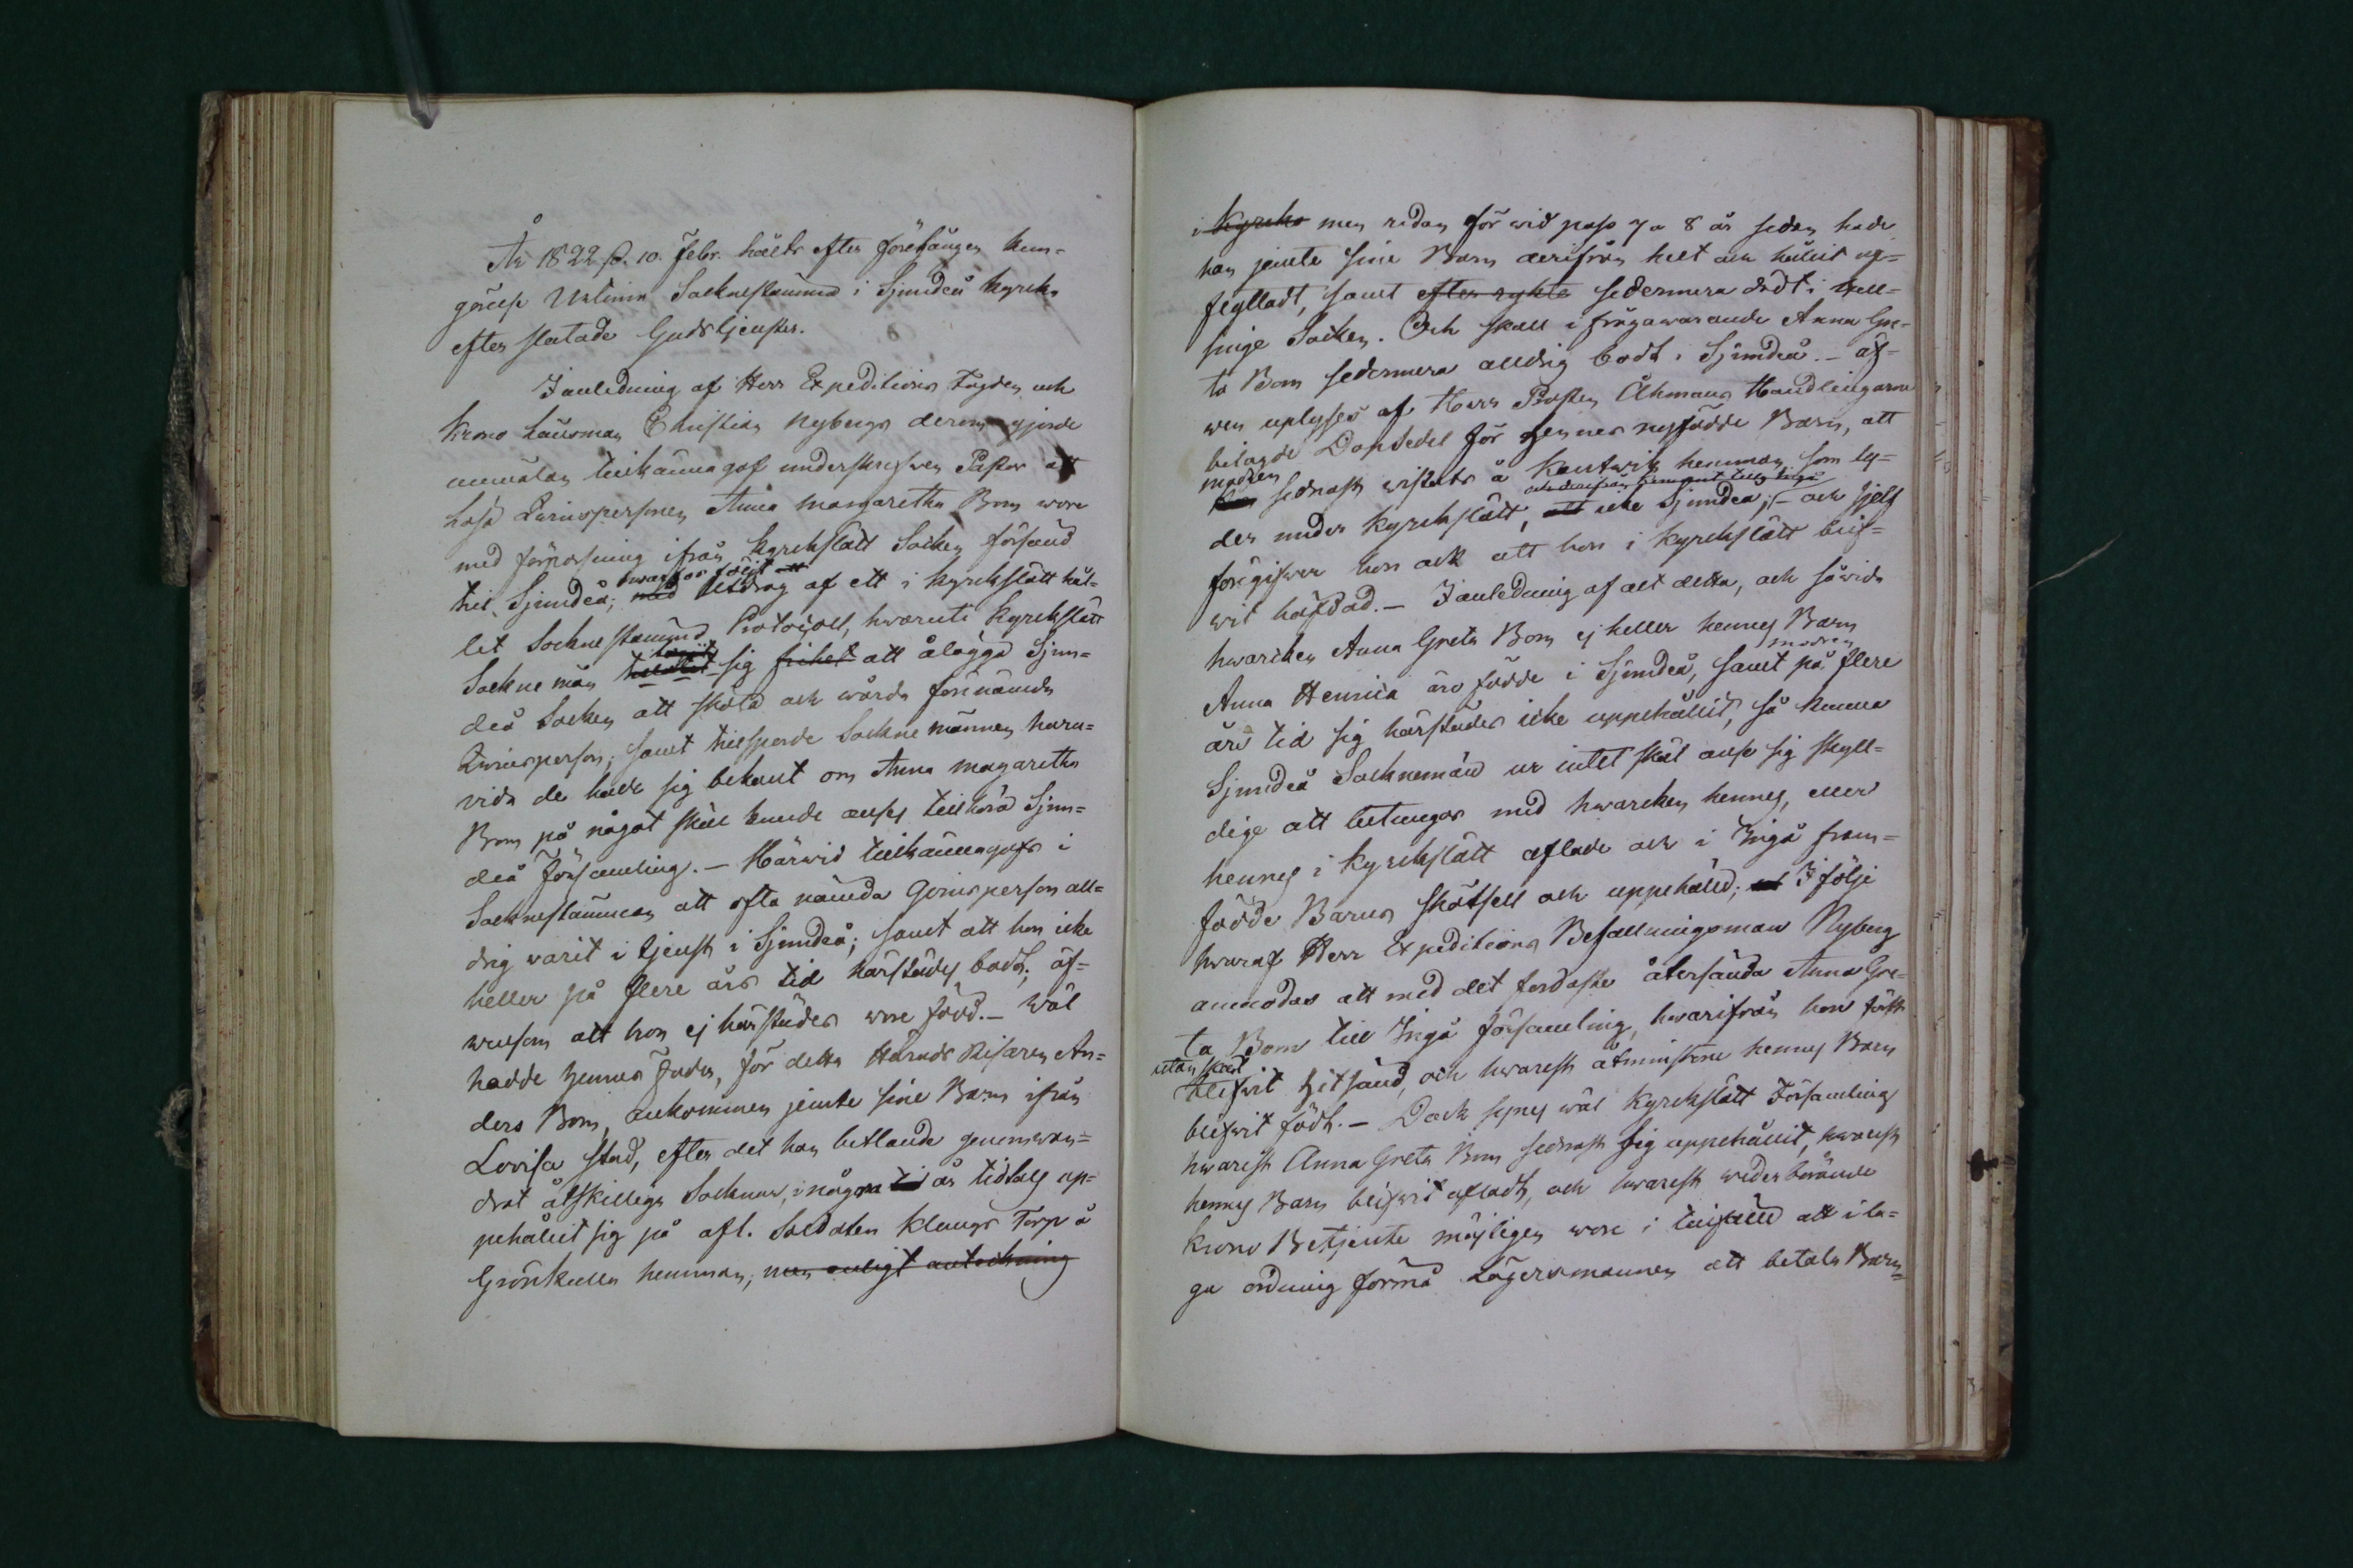 År 1822 d. 10. Febr. hölts efter föregången kun-
görelse Urtima Sockne stämma i Sjundeå Kyrcka
efter slutade Gudstjensten.
I anledning af Herr Expeditions Fogden och
Krono Länsman Christian Nybergs derom gjorde
anmälan tillkännagaf underskrefwen Pastor att
Lösa Qwinspersonen Anna Margaretha Bom wore
med förpassning ifrån Kyrckslätt Socken försänd
till Sjundeå; med Utdrag af ett i Kyrckslätt hål-
hwarför följt att
let Socknestämmo Protocoll, hwaruti Kyrckslätt
Sockne män tagit sig frihet att ålägga Sjun-
deå Socken att sköta och wårda förenämnda
Qwinsperson; samt tillsporde Socknemännen huru-
vida de hade sig bekant om Anna Margaretha
Bom på något skäl kunde anses tillhöra Sjun-
deå Församling. – Härwid tillkännagafs i
Sockne stämman att ofta nämnda Qwinsperson all-
drig varit i tjenst i Sjundeå; samt att hon icke
heller på flere års tid härstädes bodt; äf-
wensom att hon ej härstädes wore född. – Wäl
hadde hennes Fader, för detta Härads Risaren An-
ders Bom, ankommen jemte sine Barn ifrån
Lovisa stad, efter det han betlande genomwan-
drat åtskillega Socknar, i några år tidtals up-
pehållit sig på afl. Soldaten Klangs Torp å
Grönkulla hemman; men enligt anteckning
i Kyrcko men redan för wid pass 7 a 8 år sedan hade
han jemte sine Barn derifrån helt och hållit af-
flyttadt, samt efter rykte sedermera dödt i Hel-
singe Socken. Och skall i frågawarande Anna Gre-
ta Bom sedermera alldrig bodt i Sjundeå. – Äf-
wen uplyses af Herr Prosten Åhmans Handlingarne
bilagde Dopsedel för hennes nyfödde Barn, att
modren
sednast wistats å Kantwik hemman som ly-
der under Kyrckslätt, icke Sjundeå; – och sjelf
föregifwer hon ock att hon i Kyrckslätt blif-
wit häfdad. – I anledning af alt detta, och såwida
hwarcken Anna Greta Bom ej heller hennes Barn
modren
Anna Henrica äro födde i Sjundeå, samt på flere
års tid sig härstädes icke uppehållit, så kunna
Sjundeå Socknemän ur intet skäl anse sig skyll-
dige att betungas med hwarcken hennes, eller
hennes i Kyrckslätt aflade och i Ingå fram-
födde Barns skötsell och uppehälld; I följe
hwaraf Herr Expeditions Befallningsman Nyberg
anmodas att med det fordaste återsända Anna Gre-
ta Bom till Ingå församling, hwarifrån hon
utan skäl
blifwit hitsänd, och hwarest åtminstone hennes Barn
blifwit född. – Dock synes wäl Kyrckslätt Församling
hwarest Anna Greta Bom sednast sig uppehållit, hwarest
hennes Barn blifwit afladt, och hwarest wederbörande
Krono Betjente möjligen wore i tillfälle att i la-
ga ordning förmå Lägersmannen att betala Barn-